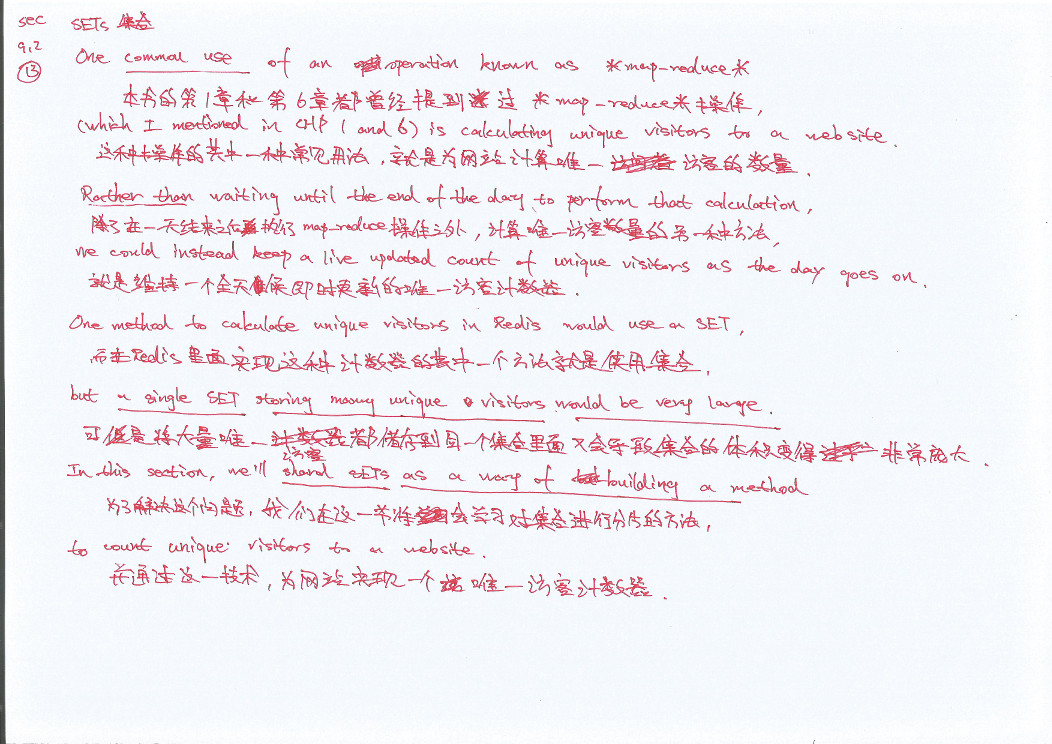 sec SETs 集合
9.2
⑬ One common use of an operation known as *map-reduce*
本书的第1章和第6章都曾经提到过 *map-reduce* 操作,
(which I mentioned in CHP 1 and 6) is calculating unique visitors to a website.
这种操作的其中一种常见用法,就是为网站计算唯一访客的数量.
Rather than waiting until the end of the day to perform that calculation,
除了在一天结束之后执行 map-reduce 操作之外,计算唯一访客数量的另一种方法,
we could instead keep a live updated count of unique visitors as the day goes on.
就是维持一个全天候即时更新的唯一访客计数器.
One method to calculate unique visitors in Redis would use a SET,
而在Redis里面实现这种计数器的其中一个方法就是使用集合,
but a single SET storing many unique visitors would be very large.
可但是将大量唯一访客都储存到同一个集合里面又会导致集合的体积变得非常庞大.
In this section, we'll shard SETs as a way of building a method
为了解决这个问题,我们在这一节将会学习对集合进行分片的方法,
to count unique visitors to a website.
并通过这一技术,为网站实现一个唯一访客计数器.